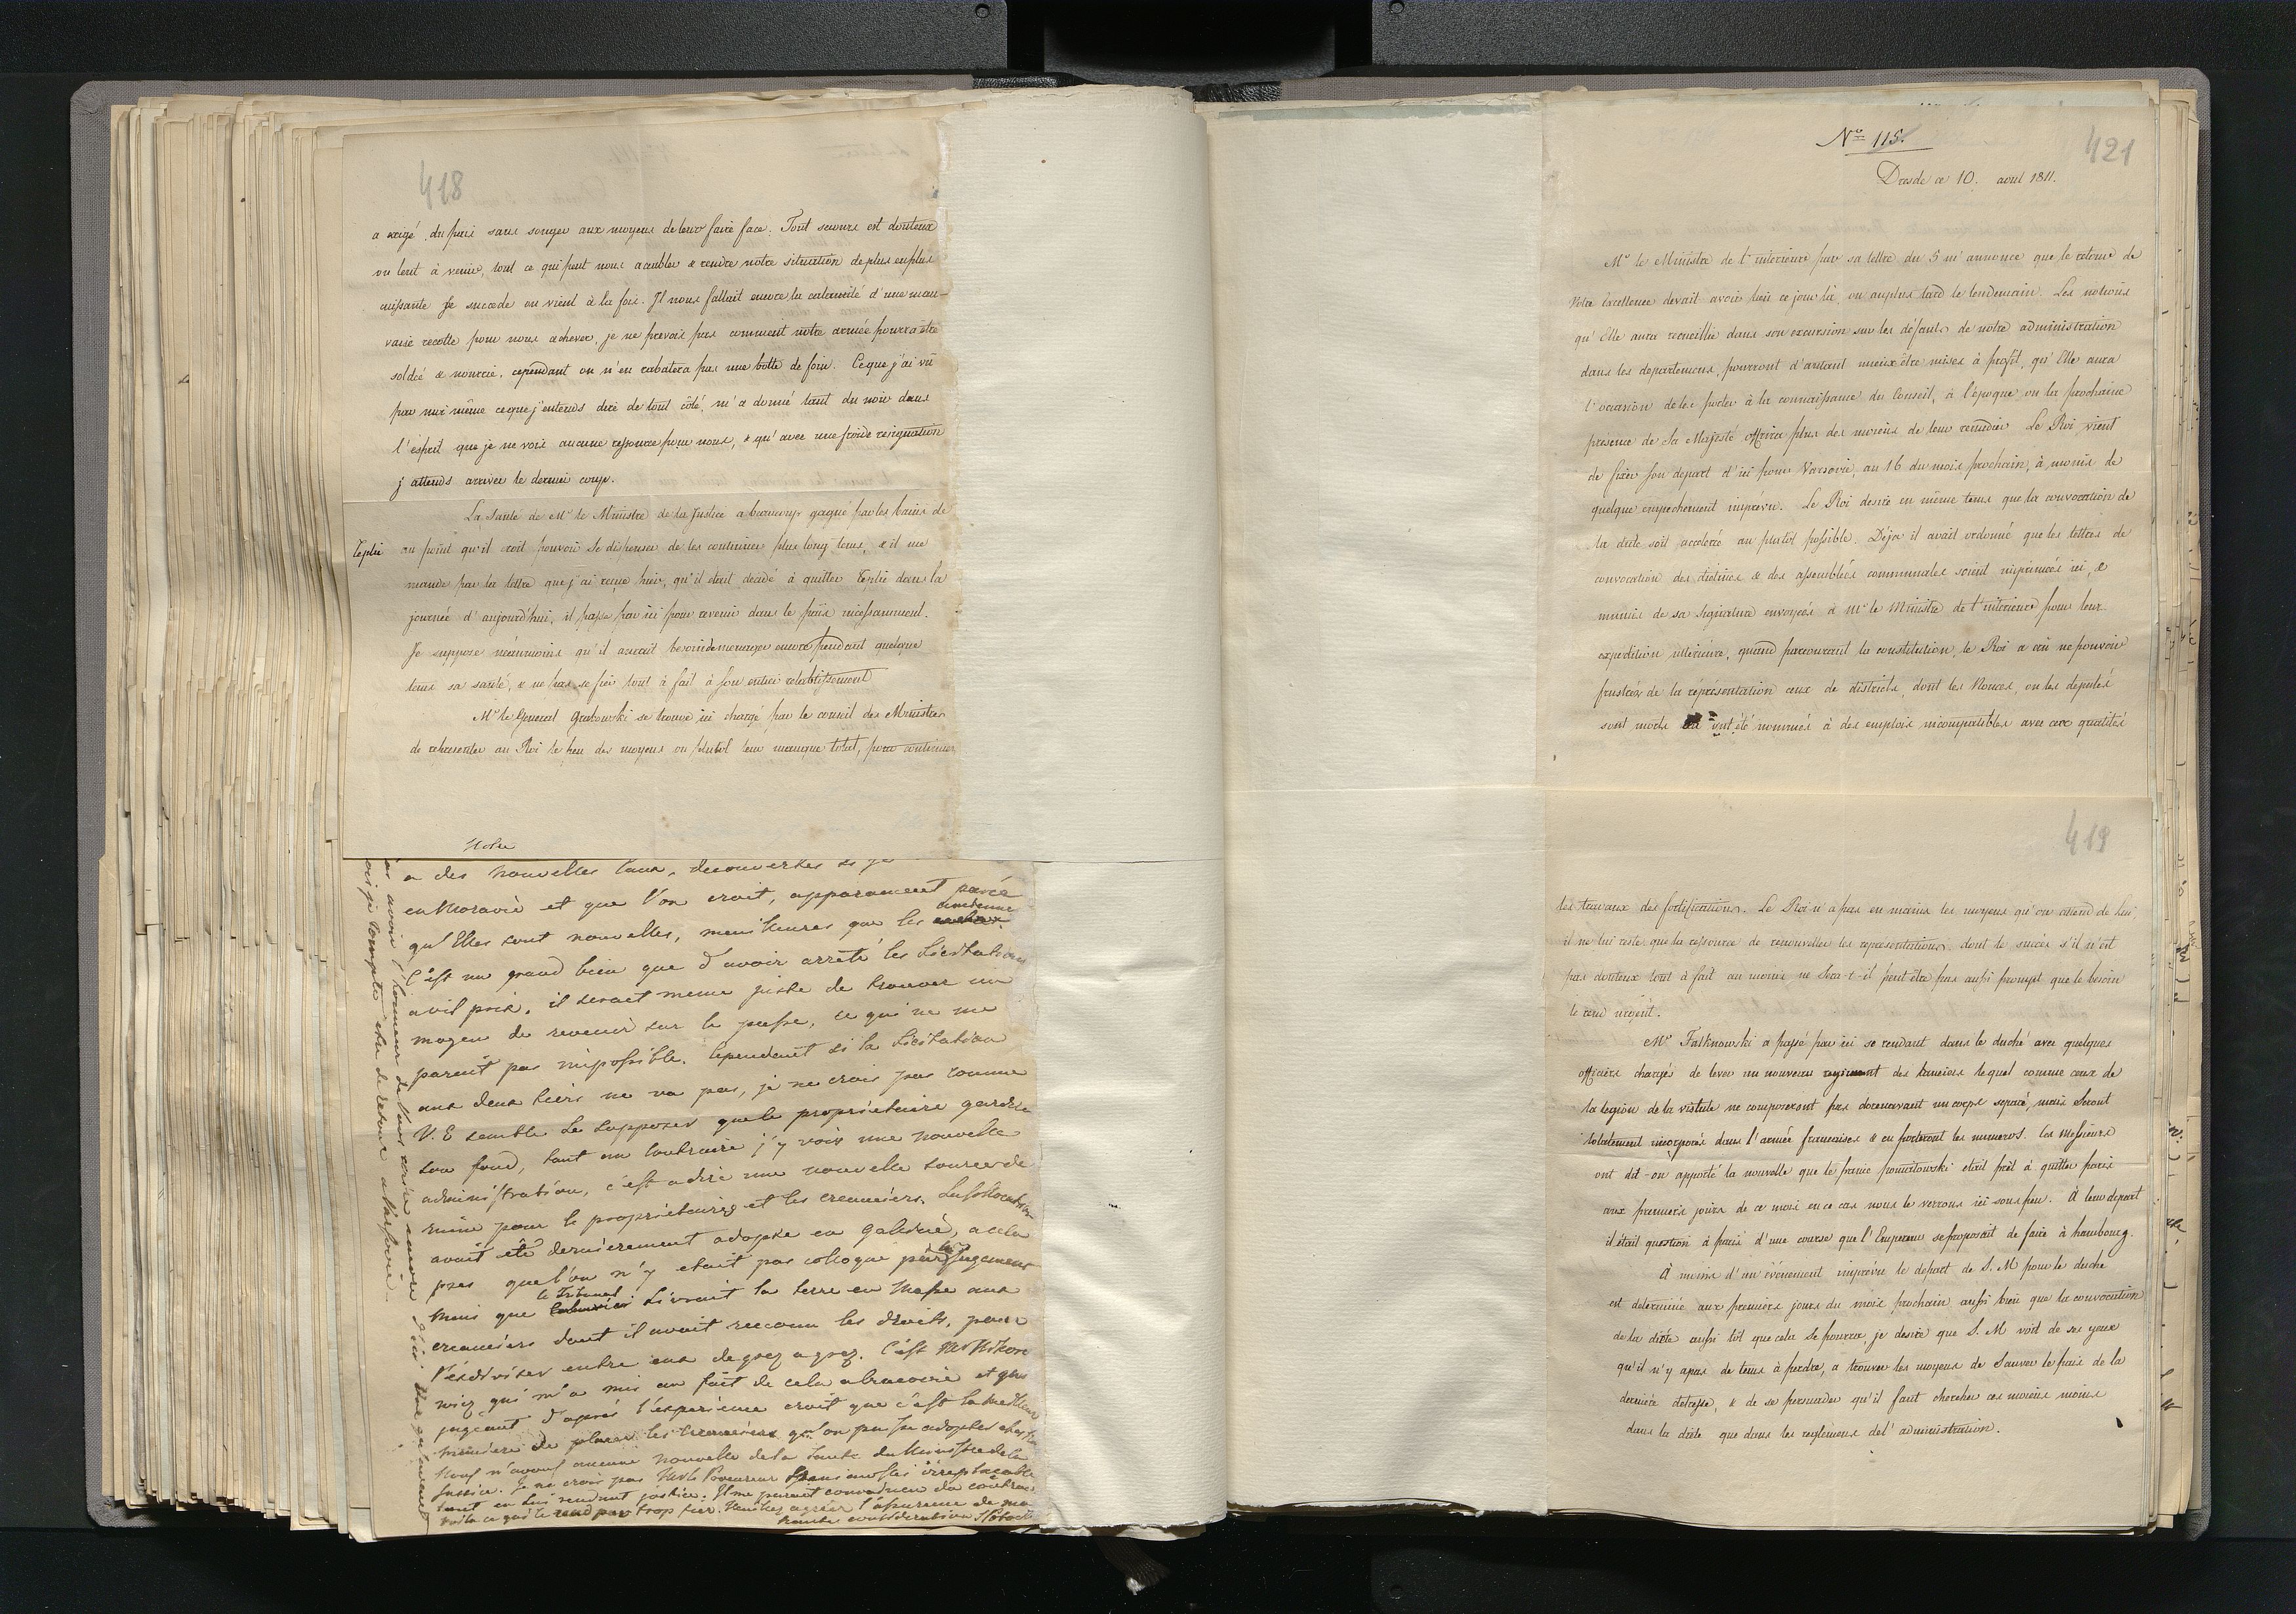 418
a exigé du païs sans songer aux moyens de leur faire face. Tout secours est douteux
ou lent à venir, tout ce qui peut nous accabler & rendre notre situation de plus en plus
se succede ou vient à la fois. Il nous fallait encore la calamité d'une mau-
vaise recolte pour nous achever, je ne prevois pas comment notre armée pourra être
soldée & nourrie, cependant on n'en rabatera pas une botte de foin. Ce que j'ai vû
par moi même ce que j'entends dire de tout côté, m'a donné tant du noir dans
l'esprit que je ne vois aucune ressource pour nous, & qu'avec une froide resignation
j'attends arriver le dernier coup.
La santé de Mr le Ministre de la Justice a beaucoup gagné par les bains de
Teplie au point qu'il croit pouvoir se dispenser de les continuer plus long tems, & il me
mande par la lettre que j'ai reçue hier, qu'il etait decidé à quitter Teplie dans la
journée d'aujourd'hui, il passe par ici pour revenir dans le païs incessamment.
Je suppose néanmoins qu'il aurait besoin de menager encore pendant quelque
tems sa santé, & ne pas se fier tout à fait à son entier retablissement
Mr le General Grabowski se trouve ici chargé par le conseil des Ministres
de representer au Roi le peu des moyens ou plutôt leur manque total, pour continuer
a des nouvelles taux, decouvertes si je
en Moravie et que l'on croit, apparament parcé
qu'Elles sont nouvelles, meilleures que les
C'est un grand bien que d'avoir arreté les Licitations
a vil prix, il serait meme juste de trouver un
moyen de revenir sur le passé, ce qui ne me
parait pas impossible. Cependant si la Licitation
aux deux tiers ne va pas, je ne crois pas comme
V. E semble le supposer que le proprietaire garde
son fond, tout au contraire j'y vois une nouvelle
administration, c'est a dire une nouvelle source de
ruine pour le proprietaire et les creanciers.
avait été dernierement adoptée en Galicie, a cela
pres que l'on n'y etait pas colloqué par jugement
mais que le tribunal livrait la terre en masse aux
creanciers dont il avait reconnu les droits, pour
l'exdiviser entre eux de grez a grez. C'est Mr
qui m'a mis au fait de cela a Cracovie et qui
jugeant d'après l'experience croit que c'est la meilleure
maniere de placer les creanciers qu'on puisse adopter chez
Nous n'avons aucune nouvelle de la santé du Ministre de la
Justice. Je ne crois pas Mr le Procureur aussi irreplacable
tout en lui rendant justice. Il me parait convaincu du contraire
voila ce qui le rend par trop fier. Veuillez agréer l'assurance de ma
haute consideration
No 115.
421
Dresde ce 10. aout 1811.
Mr le Ministre de l'interieur par sa lettre du 5 m'annonce que le retour de
Votre Excellence devait avoir lieu ce jour là, ou au plus tard le lendemain. Les notions
qu'Elle aura recueillie dans son excursion sur les défauts de notre administration
dans les departemens, pourront d'autant mieux être mises à profit, qu'Elle aura
l'occasion de les porter à la connaissance du Conseil, à l'époque ou la prochaine
présence de Sa Majesté offrira plus des moiens de leur remedier. Le Roi vient
de fixer son depart d'ici pour Varsovie, au 16 du mois prochain, à moins de
quelque empechement imprevu. Le Roi desire en même tems que la convocation de
la diete soit acceleré au plutôt possible. Déja il avait ordonné que les lettres de
convocation des diétines & des assemblées communales soient imprimées ici, &
munies de sa signature envoyées à Mr le Ministre de l'interieur pour leur
expedition ulterieure, quand parcourant la constitution, le Roi a crû ne pouvoir
frustrer de la réprésentation ceux de districts, dont les Nonces, ou les deputés
sont morts ou ont été nommés à des emplois incompatibles avec ces qualités
419
les travaux des fortifications. Le Roi n'a pas en mains les moyens qu'on attend de lui
il ne lui reste que la ressource de renouveller les representations, dont le succès s'il n'est
pas douteux tout à fait au moins ne sera-t-il peut être pas aussi prompt que le besoin
le rend urgent.
Mr Falknowski a passé par ici se rendant dans le duché avec quelques
officiers chargés de lever un nouveau regiment des lanciers lequel comme ceux de
la legion de la vistule ne composeront pas dorenavant un corps separé, mais seront
totalement incorporés dans l'armée française & en porteront les numeros. Ces Messieurs
ont dit-on apporté la nouvelle que le prince poniatowski etait prêt à quitter paris
aux premiers jours de ce mois en ce cas nous le verrons ici sous peu. À leur depart
il était question à paris d'une course que l'Empereur se proposait de faire à hambourg.
À moins d'un événement imprévu le depart de S. M pour le duché
est determiné aux premiers jours du mois prochain aussi bien que la convocation
de la diète aussi tôt que cela se pourra, je desire que S. M voit de ses yeux
qu'il n'y a pas de tems à perdre, a trouver les moyens de sauver le païs de la
derniere detresse, & de se persuader qu'il faut chercher ces moiens moins
dans la diète que dans les reglemens de l'administration.